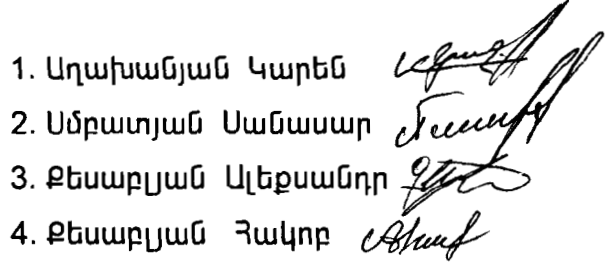 1. Աղախանյան Կարեն
2. Սմբատյան Սանասար
3. Քեսաբլյան Ալեքսանդր
4. Քեսաբլյան Հակոբ